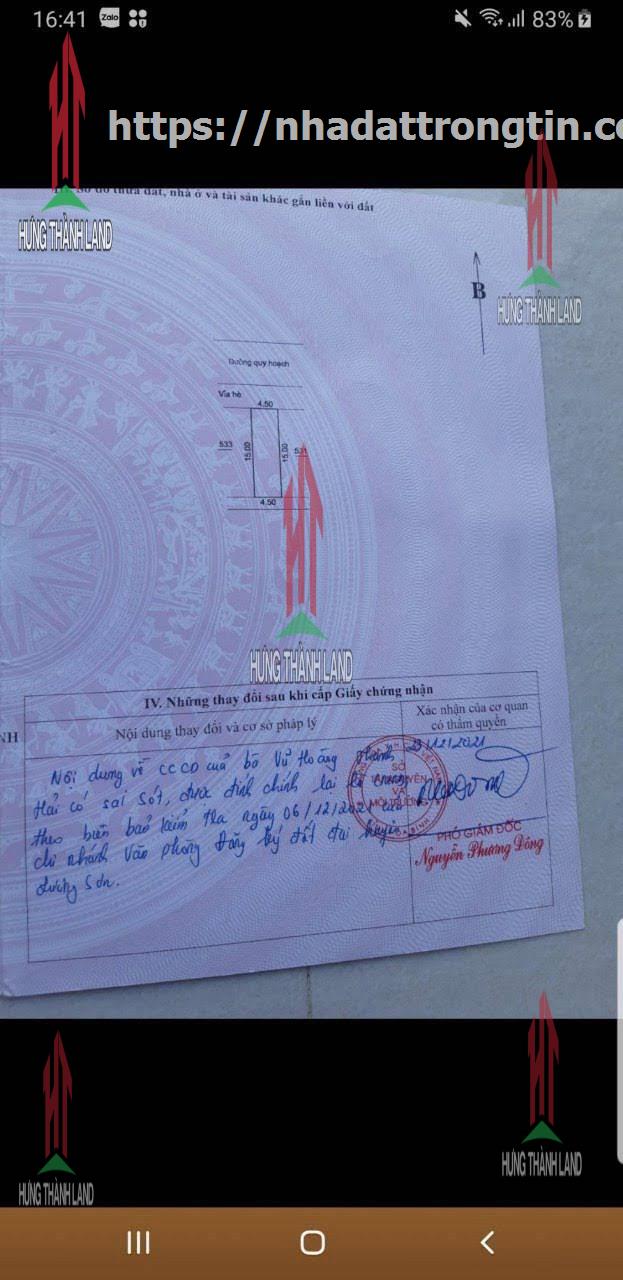 16:41
Zalo
83%
https://nhadattrongtin.co
III. Sơ đồ thửa đất, nhà ở và tài sản khác gắn liền với đất
HƯNG THÀNH LAND
HƯNG THÀNH LAND
B
Đường quy hoạch
Vỉa hè
4.50
533
15.00
15.00
531
4.50
HƯNG THÀNH LAND
IV. Những thay đổi sau khi cấp Giấy chứng nhận
NH
Nội dung thay đổi và cơ sở pháp lý
Xác nhận của cơ quan
có thẩm quyền
Nội dung về CCCD của bà Vũ Hoàng
23/12/2021
Hải có sai sót, được đính chính lại
theo biên bản kiểm tra ngày 06/12/2021 của
chi nhánh Văn phòng Đăng ký đất đai huyện
Lương Sơn.
SỞ
TÀI NGUYÊN
VÀ
MÔI TRƯỜNG
PHÓ GIÁM ĐỐC
Nguyễn Phương Đông
HƯNG THÀNH LAND
HƯNG THÀNH LAND